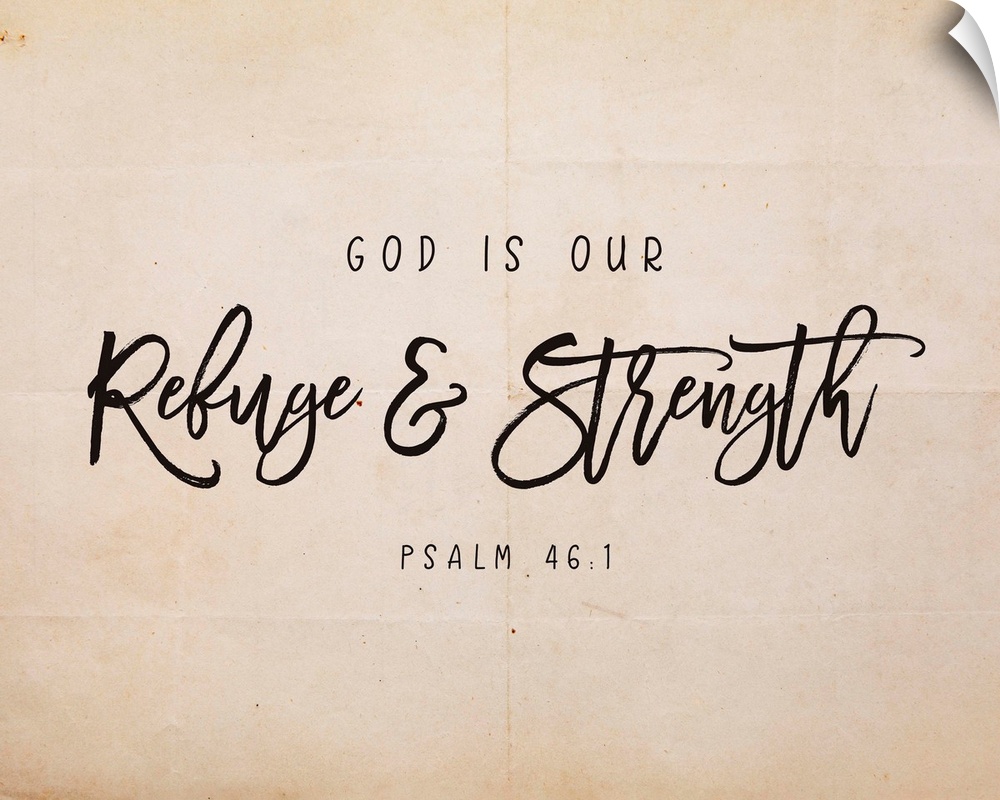 GOD IS OUR
Refuge & Strength
PSALM 46:1